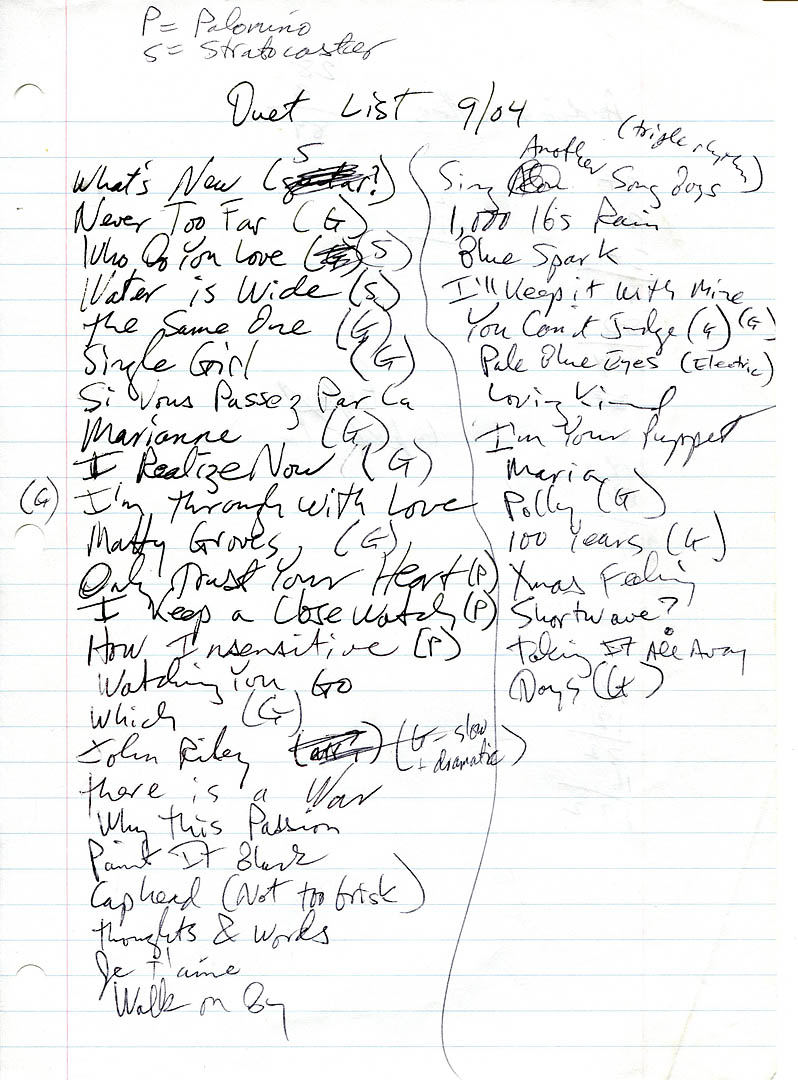 P = Palomino
S = Stratocaster
Duet List 9/04
What's New (S)
Never Too Far (G)
Who Do You Love (S)
Water is Wide (S)
the Same One (G)
Single Girl (G)
Si Vous Passez Par La
Marianne (G)
I Realize Now (G)
(G) I'm through With Love
Matty Groves (G)
Only Trust Your Heart (P)
I Keep a Close Watch (P)
How Insensitive (P)
Watching You Go
Which (G)
John Riley (G - slow
+ dramatic)
there is a War
Why this Passion
Paint It Black
Caphead (Not too brisk)
thoughts & Words
Je T'aime
Walk on By
Sing Another Song Boys (triple rhythm)
1,000 lbs Rain
Blue Spark
I'll Keep it With Mine
You Can't Judge (G) (G)
Pale Blue Eyes (Electric)
Loving Kind
I'm Your Puppet
Maria
Polly (G)
100 Years (G)
Xmas Feeling
Shortwave?
Taking It All Away
Days (G)